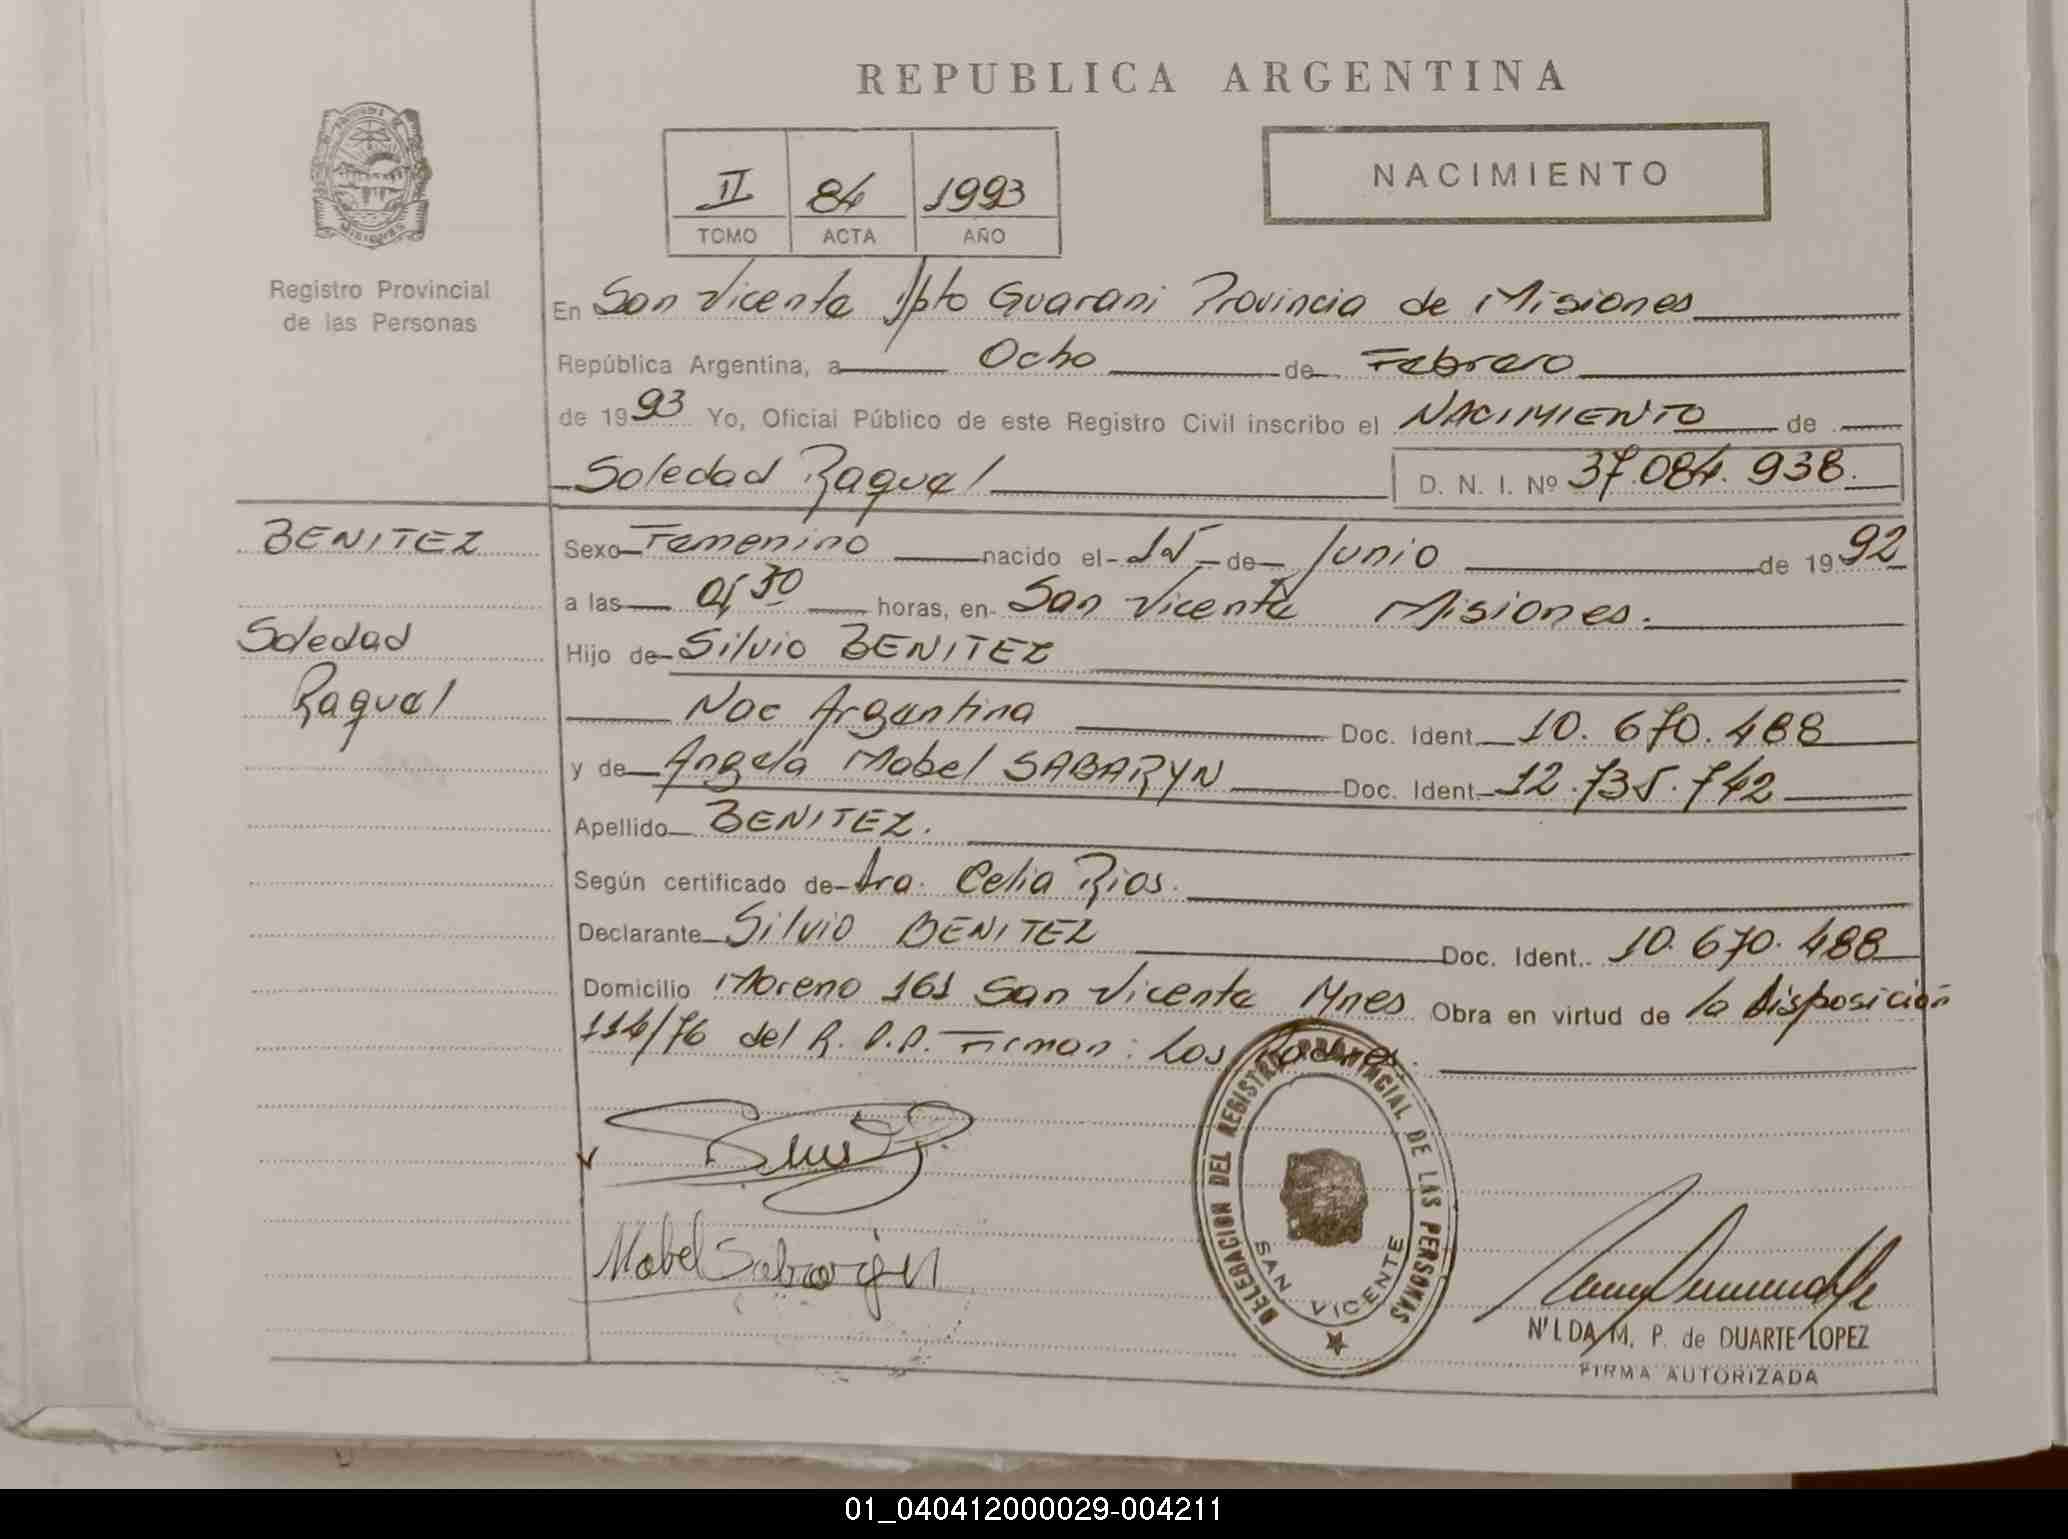 REPUBLICA ARGENTINA
NACIMIENTO
II 84 1993
TOMO ACTA AÑO
MISIONES
Registro Provincial
de las Personas
En San Vicente Dpto Guarani Provincia de Misiones
República Argentina, a Ocho de Febrero
de 1993 Yo, Oficial Público de este Registro Civil inscribo el NACIMIENTO de
Soledad Raquel D. N. I. Nº 37.084.938.
BENITEZ
Soledad
Raquel
Sexo Femenino nacido el 15 de Junio de 1992
a las 01 30 horas, en San Vicente Misiones.
Hijo de Silvio BENITEZ
Nac Argentina Doc. Ident. 10.670.488
y de Angela Mabel SABARYN Doc. Ident. 12.735.742
Apellido BENITEZ.
Según certificado de Dra. Celia Rios.
Declarante Silvio BENITEZ Doc. Ident. 10.670.488
Domicilio Moreno 161 San Vicente Mnes Obra en virtud de la Disposición
114/76 del R.P.P. Firman: Los Padres.
Mabel Sabaryn
DELEGACION DEL REGISTRO PROVINCIAL DE LAS PERSONAS
SAN VICENTE
NILDA M. P. de DUARTE LOPEZ
FIRMA AUTORIZADA
01_040412000029-004211